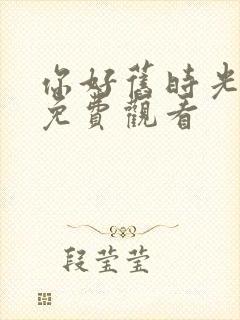 你好舊時光
免費觀看
段莹莹